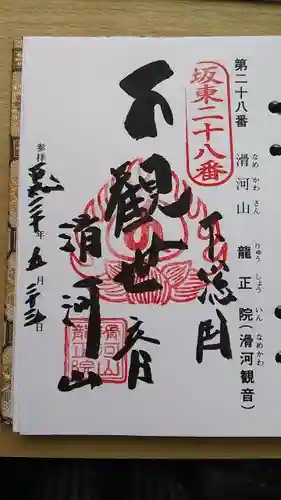 第二十八番 滑河山 龍正院(滑河観音)
なめ かわ さん りゅう しょう いん なめかわ
坂東二十八番
下総国
觀世音
滑河山
滑河山
龍正院
参拝 年 五月 日